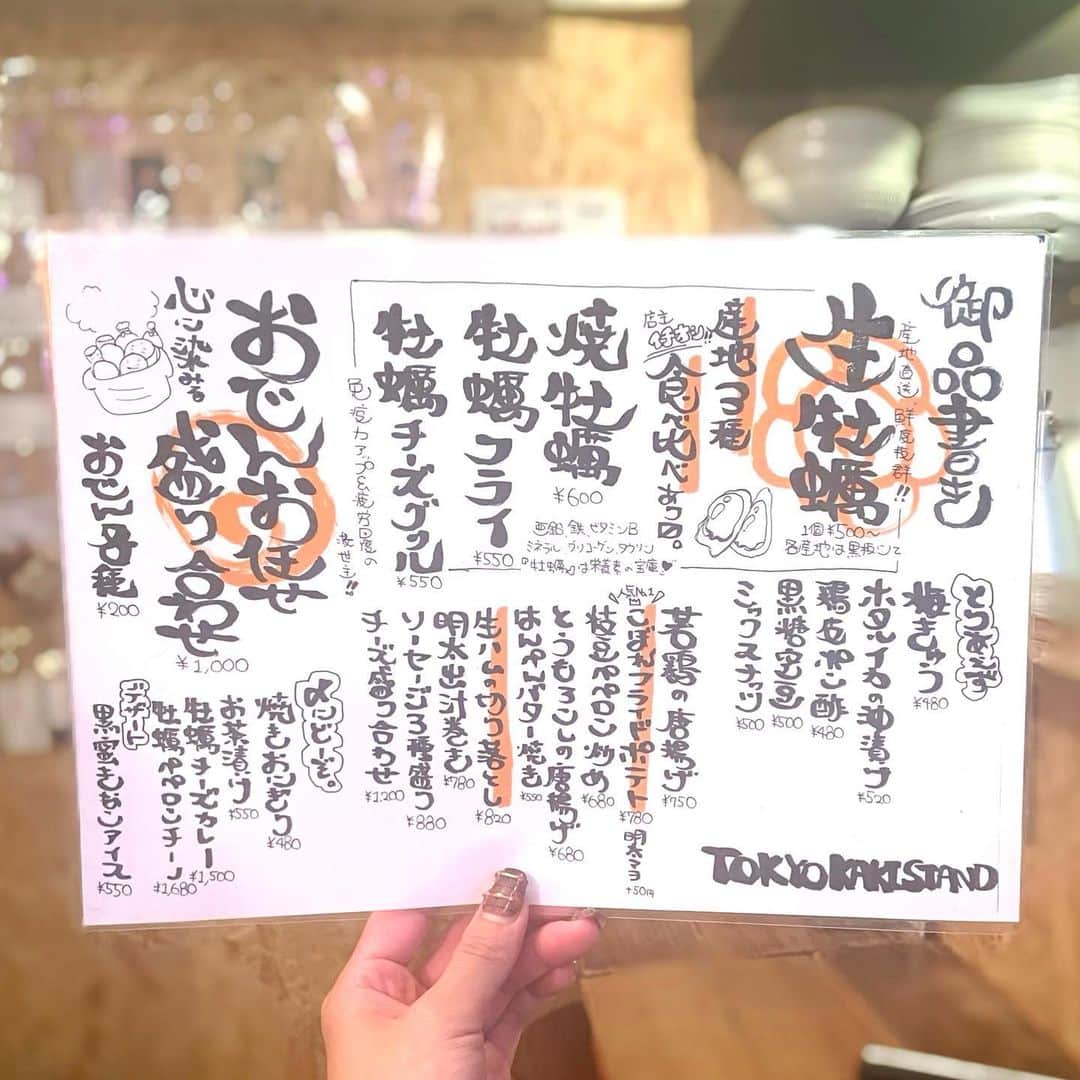 御品書き
産地直送 鮮度抜群!!
生牡蠣
1個¥500〜
各産地は黒板にて
産地3種
店主
食べ比べあり〼。
焼牡蠣
¥600
牡蠣フライ
¥550
牡蠣チーズグリル
¥550
免疫力アップ&疲労回復の
救世主!!
亜鉛、鉄、ビタミンB
ミネラル、グリコーゲン、タウリン
『牡蠣』は栄養素の宝庫♥
おでんお任せ
盛り合わせ
¥1,000
心に染みる
おでん各種
¥200
とりあえず
梅きゅう
¥480
ホタルイカの沖漬け
¥520
鶏皮ポン酢
¥480
黒糖空豆
¥500
ミックスナッツ
¥500
若鶏の唐揚げ
¥750
人気No.1
こぼれフライドポテト
¥780
明太マヨ
+50円
枝豆ペペロン炒め
¥680
とうもろこしの唐揚げ
¥680
はんぺんバター焼き
¥550
生ハムの切り落とし
¥820
明太出汁巻き
¥780
ソーセージ3種盛り
¥880
チーズ盛り合わせ
¥1,200
〆にどーぞ。
焼きおにぎり
¥480
お茶漬け
¥550
牡蠣チーズカレー
¥1,500
牡蠣ペペロンチーノ
¥1,680
デザート
黒蜜きなこアイス
¥550
TOKYO KAKI STAND